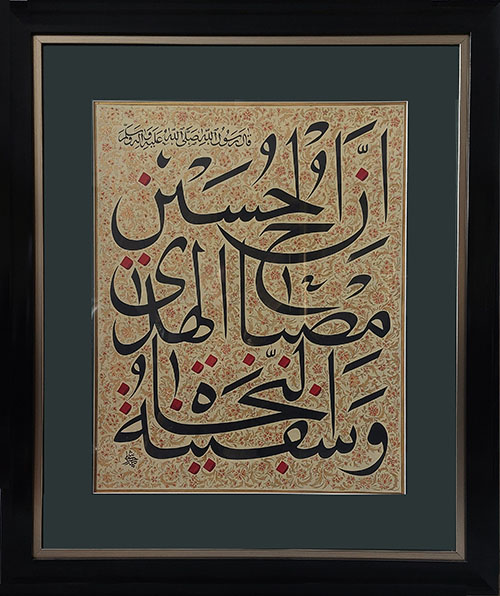 قال رسول الله صلی الله علیه وآله وسلم
إنّ الحسین
مصباح الهدی
وسفینة النجاة